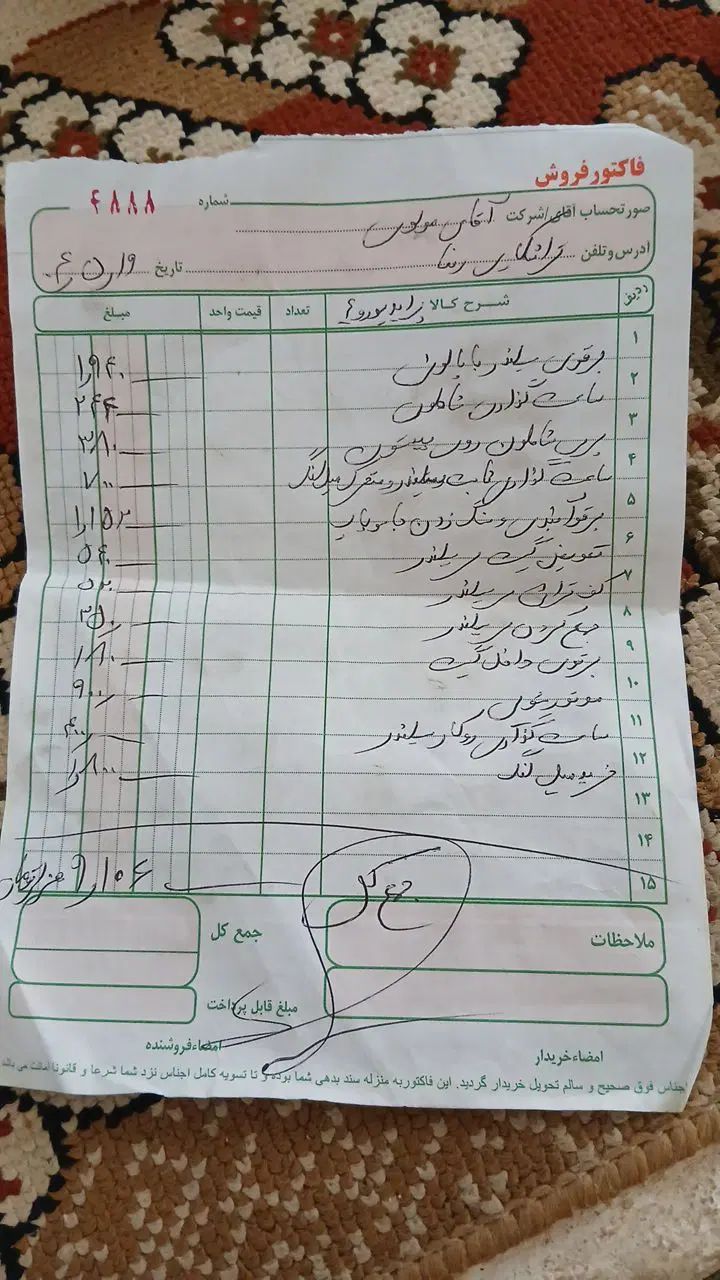 فاکتور فروش
شماره ۴۸۸۸
صورتحساب آقای/شرکت آقای مولوی
آدرس و تلفن تراشکاری رضا تاریخ
ردیف شرح کالا پراید یورو ۴ تعداد قیمت واحد مبلغ
۱ برقوی سیلندر با پالون ۱٫۹۴۰
۲ سایت گذاری شاتون ۲۴۴
۳ پرس شاتون روی پیستون ۳۸۰
۴ سایت گذاری ثابت سیلندر و متحرک میل لنگ ۷۰۰
۵ برقو آببندی و سنگ زدن جا سوپاپ ۱٫۱۵۲
۶ تعویض گیت سرسیلندر ۵۴۰
۷ کف تراش سرسیلندر ۵۲۰
۸ جمع کردن سرسیلندر ۳۵۰
۹ برقوی داخل گیت ۱۸۰
۱۰ موتورشوی ۹۰۰
۱۱ سایت گذاری روکار سیلندر ۴۰۰
۱۲ میل لنگ
۱۳
۱۴
۱۵ جمع کل ۹٫۱۰۶
ملاحظات
جمع کل
مبلغ قابل پرداخت
امضاء خریدار
امضاء فروشنده
اجناس فوق صحیح و سالم تحویل خریدار گردید. این فاکتور به منزله سند بدهی شما بوده و تا تسویه کامل اجناس نزد شما شرعا و قانونا امانت می باشد